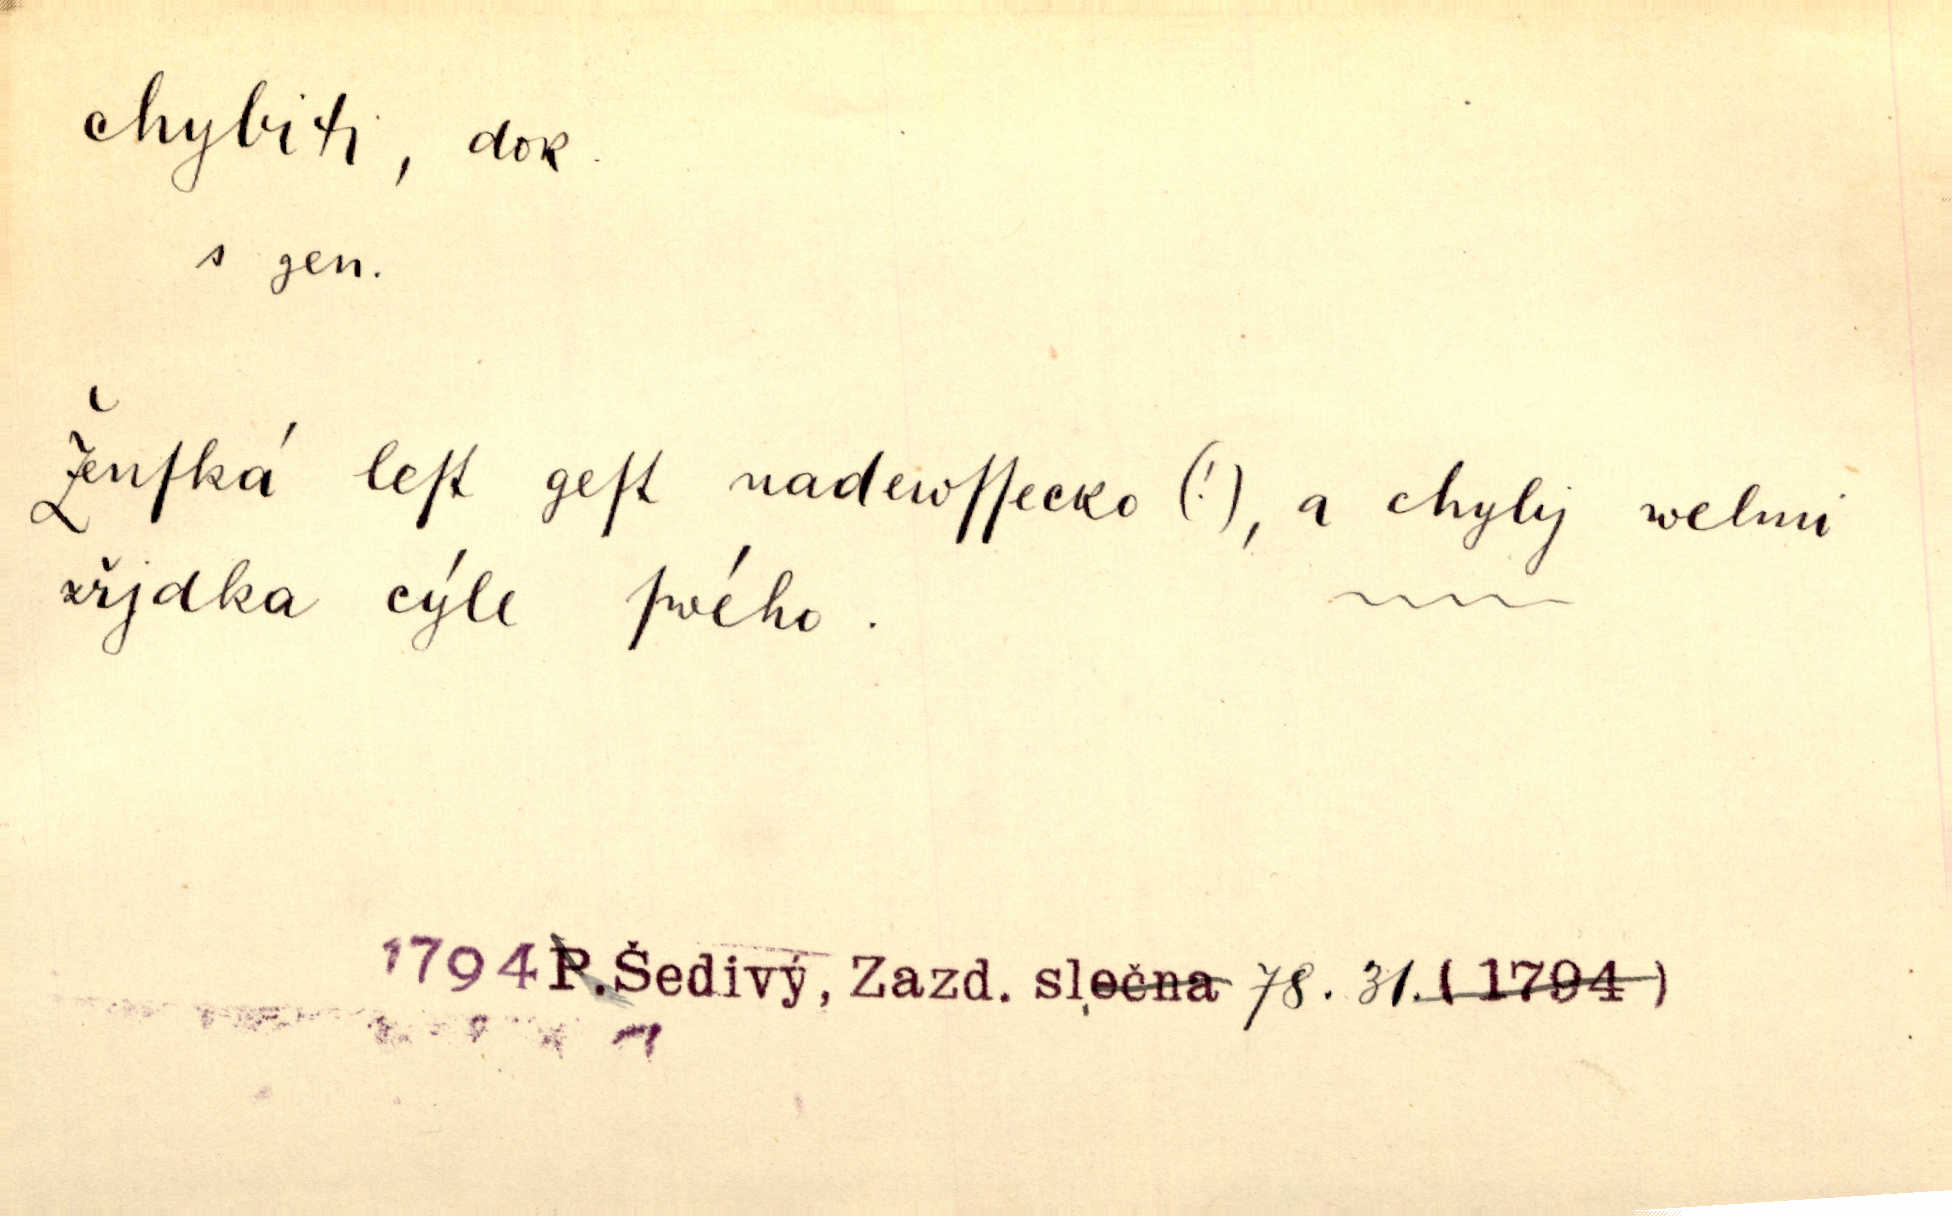 chybiti, dok.
s gen.
Ženſká leſt geſt nadewſſecko (!), a chybj welmi
zřjdka cýle ſwého.
1794 P. Šedivý, Zazd. slečna 78. 31. (1794)